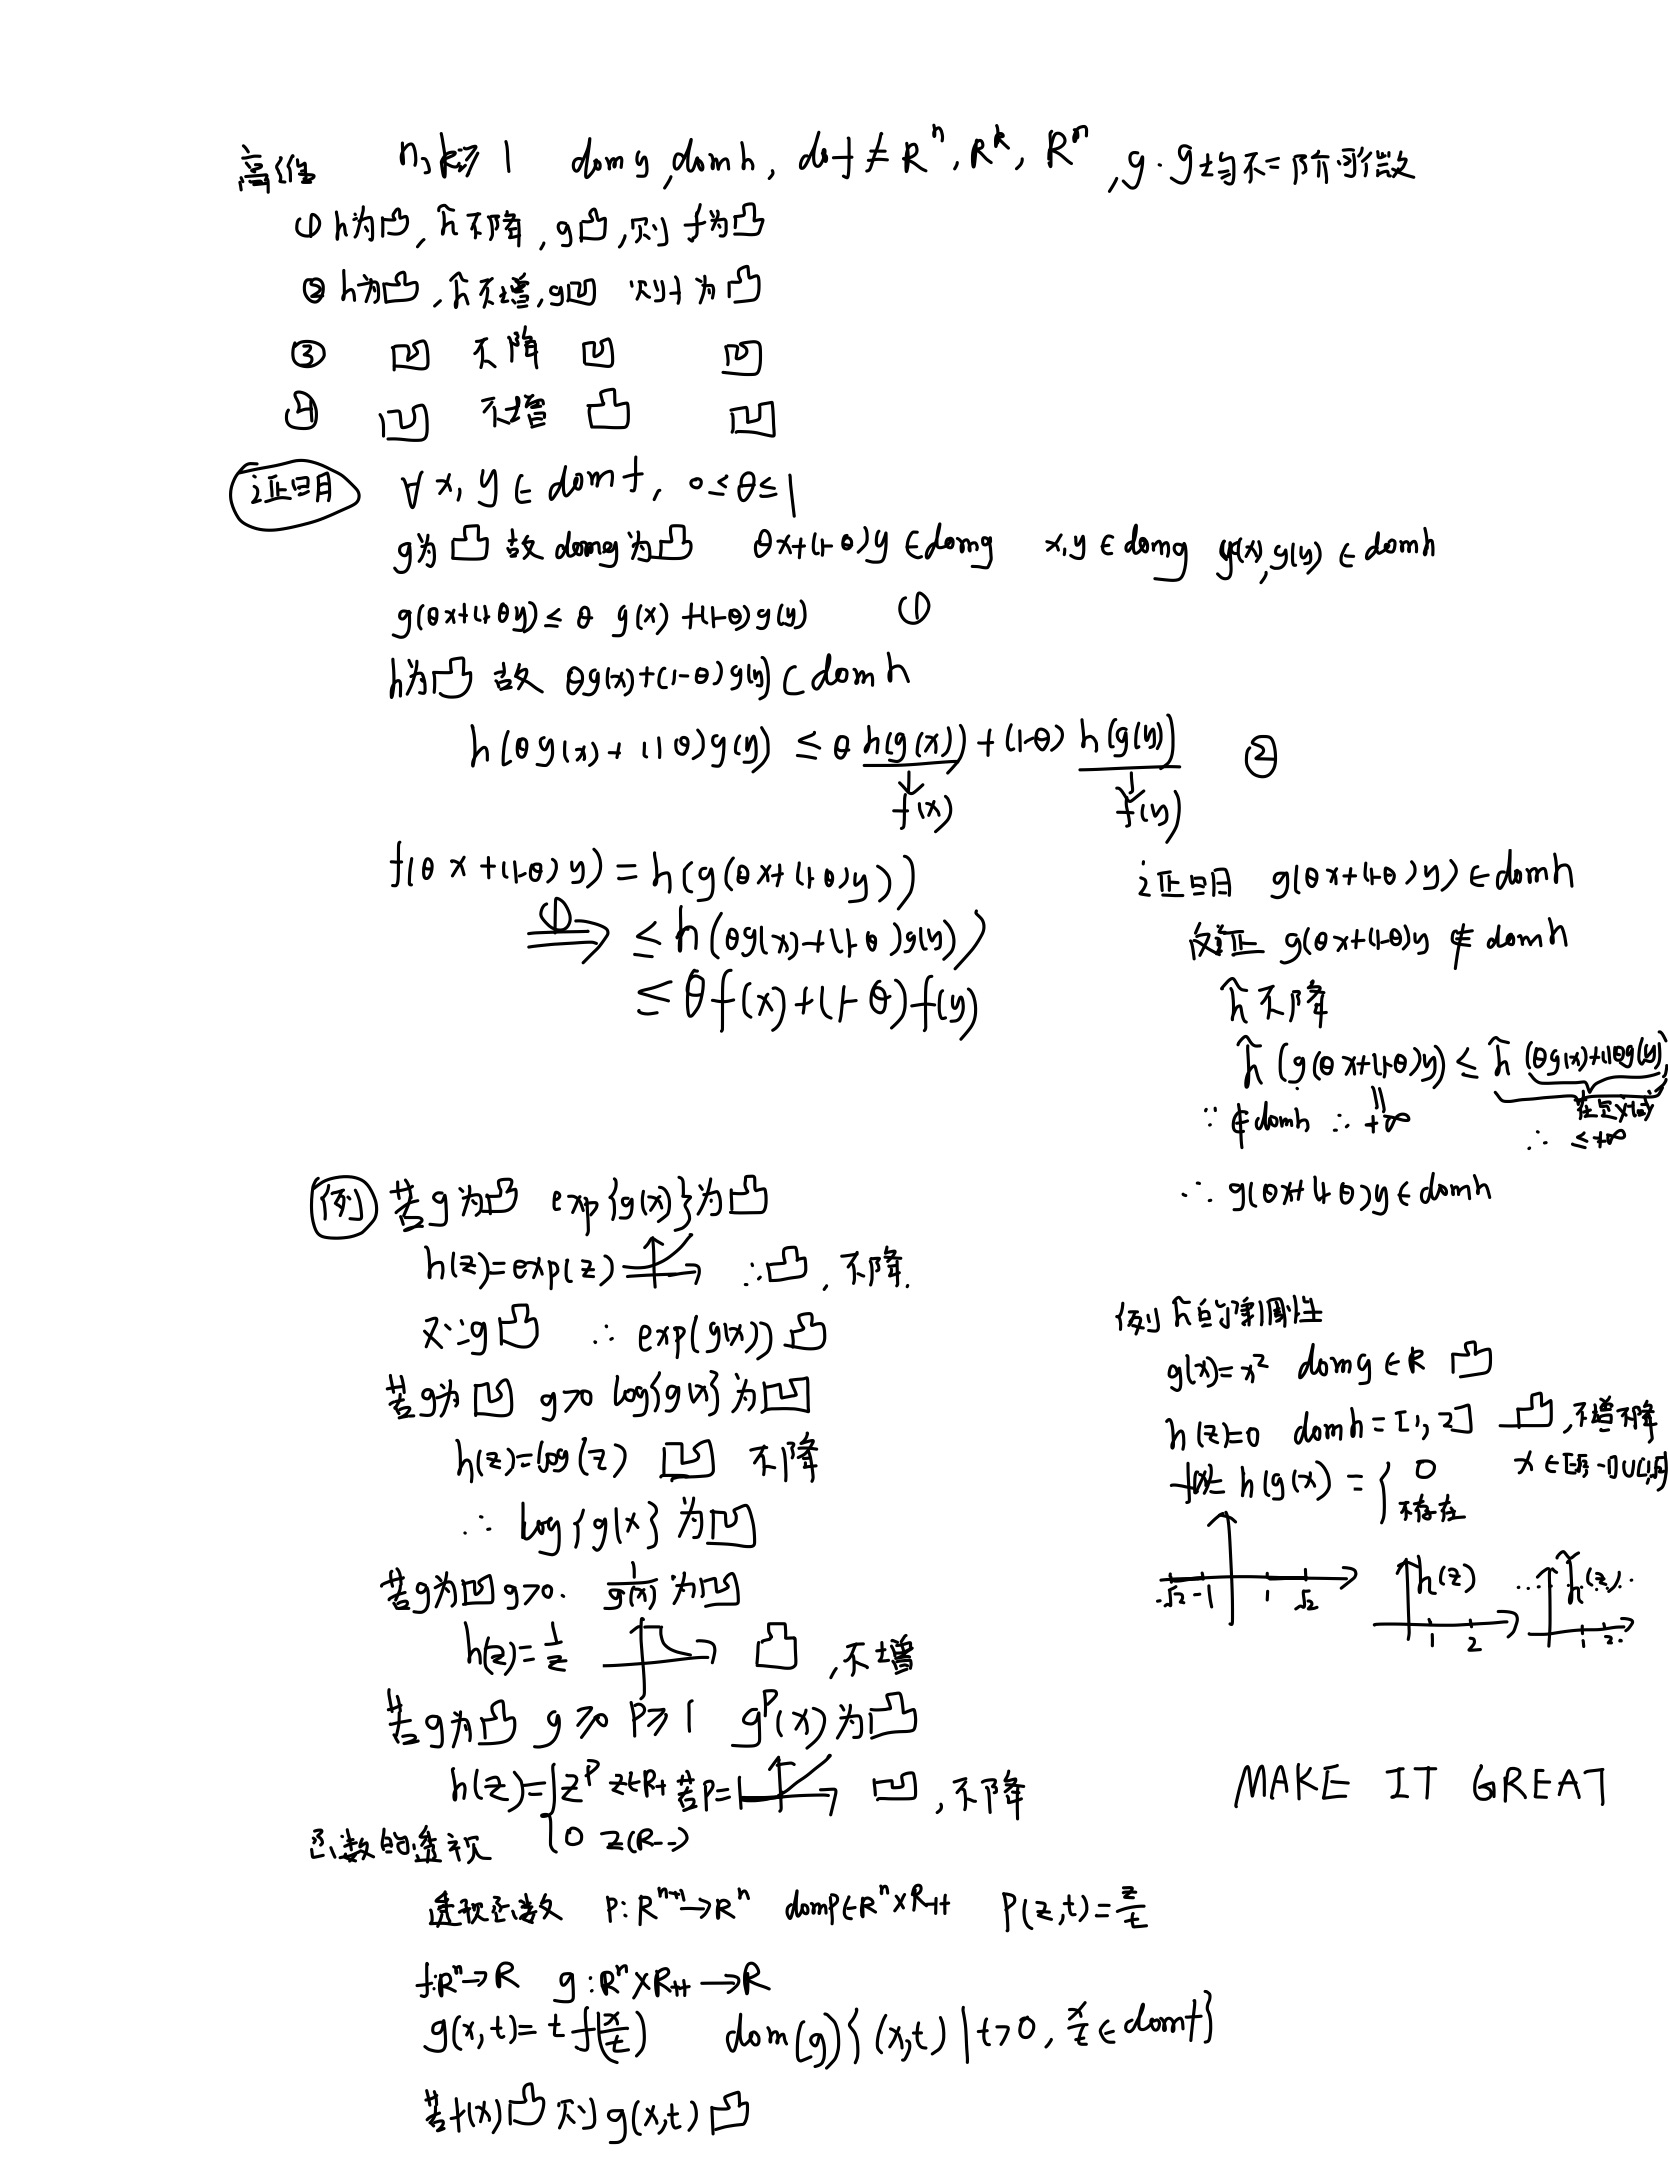 高维 n,k≥1 dom g, dom h, do f ≠ Rⁿ, Rᵏ, Rⁿ, g·g均不二阶可微
① h为凸, h̃不降, g凸, 则 f为凸
② h为凸, h̃不增, g凹 则f为凸
③ 凹 不降 凹 凹
④ 凹 不增 凸 凹
证明 ∀x, y ∈ dom f, 0≤θ≤1
g为凸 故 dom g为凸 θx+(1-θ)y ∈ dom g x,y ∈ dom g g(x), g(y) ∈ dom h
g(θx+(1-θy) ≤ θ g(x) +(1-θ)g(y) ①
h为凸 故 θg(x)+(1-θ)g(y) ⊂ dom h
h(θg(x)+(1-θ)g(y)) ≤ θ h(g(x)) + (1-θ) h(g(y)) ②
↓ ↓
f(x) f(y)
f(θx+(1-θ)y) = h(g(θx+(1-θ)y))
① ⇒ ≤ h(θg(x)+(1-θ)g(y))
≤ θf(x)+(1-θ)f(y)
证明 g(θx+(1-θ)y) ∈ dom h
反证 g(θx+(1-θ)y ∉ dom h
h̃ 不降
h̃(g(θx+(1-θ)y) ≤ h̃(θg(x)+(1-θ)g(y))
∵ ∉ dom h ∴ +∞ 在定义域
∴ ≤+∞
∴ g(θx+(1-θ)y ∈ dom h
例 若g为凸 exp{g(x)}为凸
h(z)=exp(z) ∴凸, 不降.
又∵g凸 ∴ exp(g(x)) 凸
若g为凹 g>0 log{g(x)}为凹
h(z)=log(z) 凹 不降
∴ log{g(x} 为凹
若g为凹 g>0. 1/g(x) 为凹
h(z)=1/z 凸, 不增
若g为凸 g≥0 P≥1 gᴾ(x)为凸
h(z)={zᴾ z∈R+ 若P=1 凹, 不降
0 z(R--)
例 h̃的单调性
g(x)=x² dom g ∈ R 凸
h(z)=0 dom h=[1,2] 凸, 不增不降
f(x)= h(g(x)) = { 0
不存在
-√2 -1 1 √2
h(z) 1 2
h̃(z) 1 2
MAKE IT GREAT
函数的透视
透视函数 P: Rⁿ⁺¹→Rⁿ dom P∈Rⁿ×R++ P(z,t)=z/t
f:Rⁿ→R g:Rⁿ×R++→R
g(x,t)= t f(x/t) dom(g){(x,t)|t>0, x/t ∈ dom f}
若f(x)凸 则 g(x,t) 凸